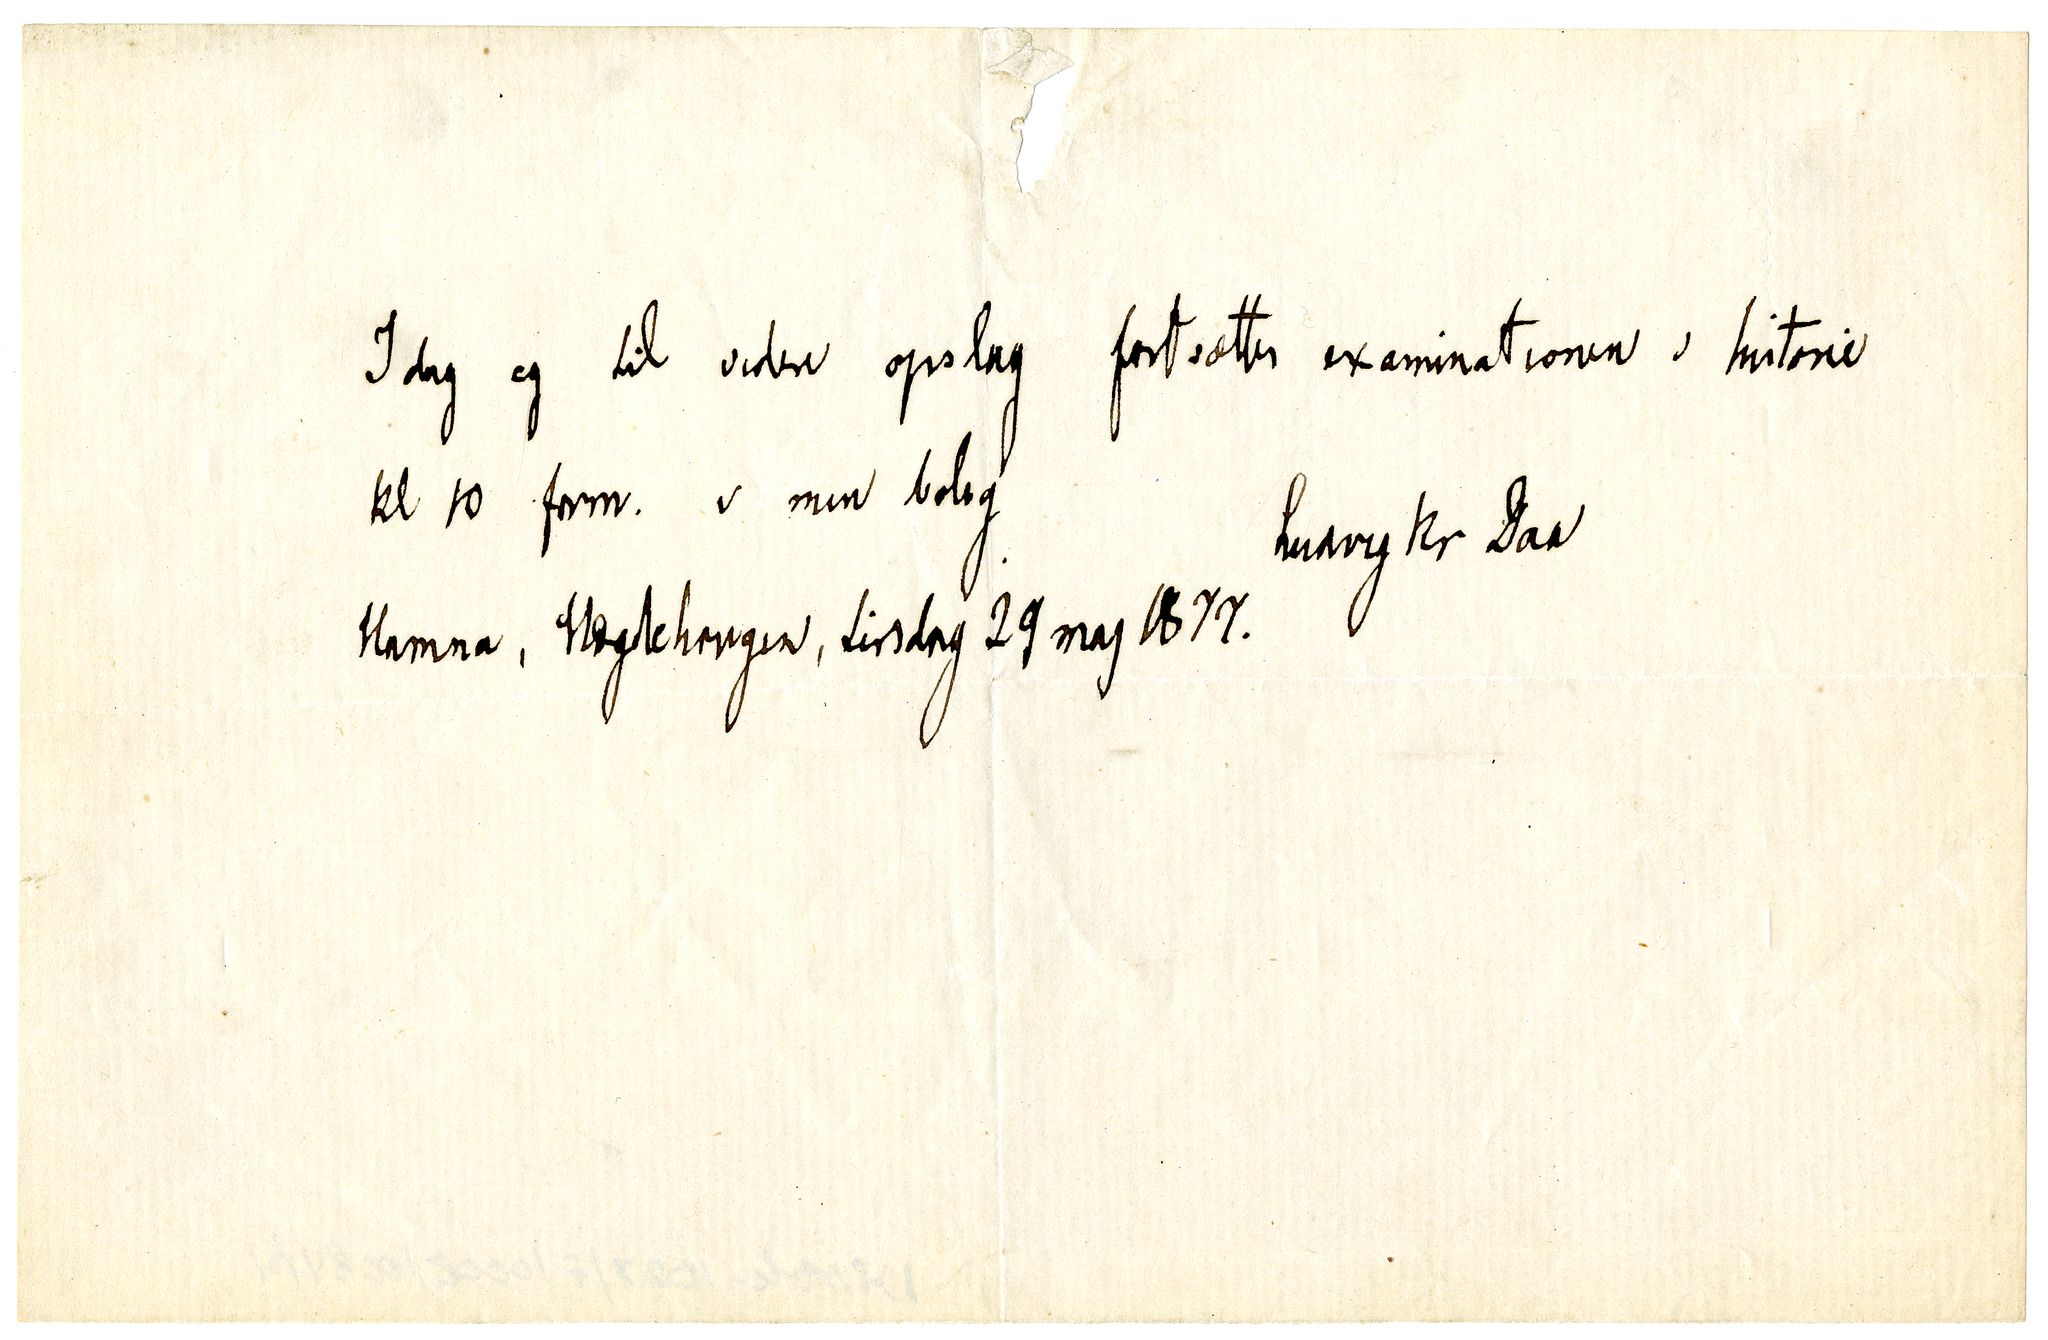 I dag og til videre opslag fortsættes examinationen i historie
kl 10 form. i min bolig
Ludvig Kr Daa
Hamna, Møglehougen, tirsdag 29 maj 1877.